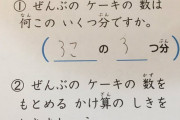 ① ぜんぶの ケーキの 数は
何この いくつ分ですか。
( 3こ の 3 つ分 )
② ぜんぶの ケーキの 数を
もとめる かけ算の しきを